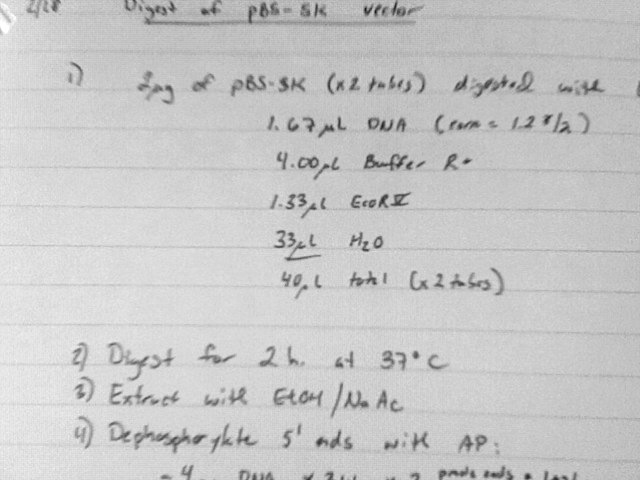 2/28 Digest of pBS-SK vector
1) 2µg of pBS-SK (x2 tubes) digested with
1.67µL DNA (conc = 1.2 γ/λ)
4.00µL Buffer R+
1.33µL EcoRV
33µL H2O
40µL total (x2 tubes)
2) Digest for 2 h. at 37°C
3) Extract with EtOH/NaAc
4) Dephosphorylate 5' ends with AP:
DNA